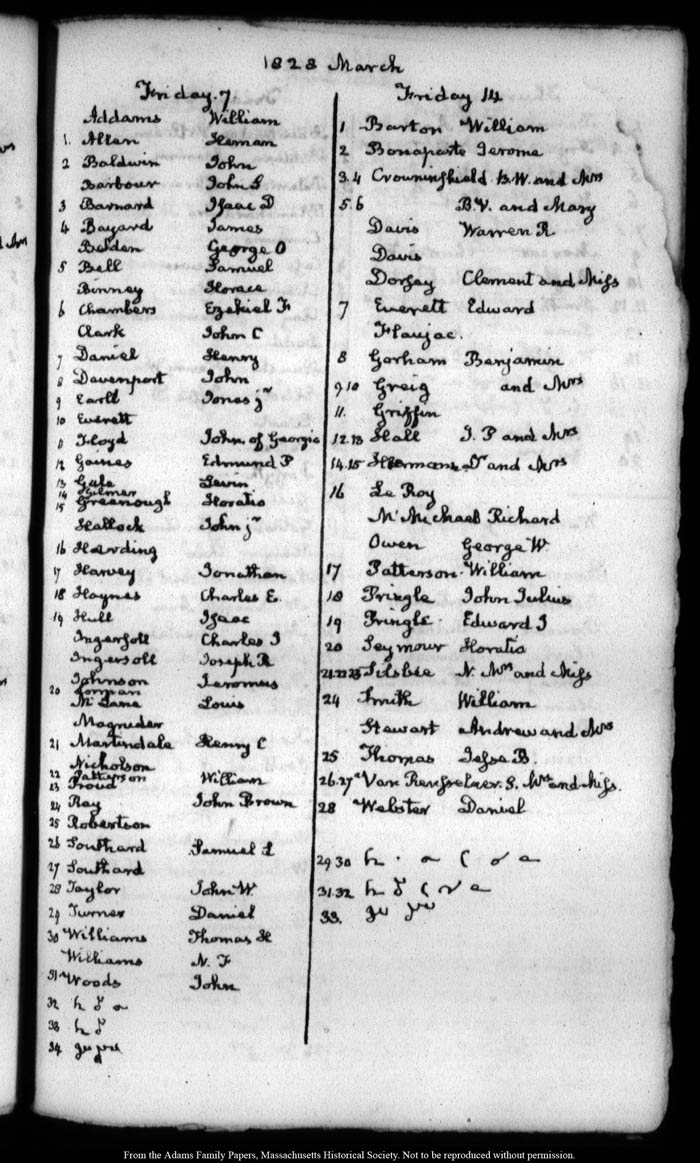 1828 March
Friday. 7
Addams William
1. Allen Heman
2 Baldwin John
Barbour John S
3 Barnard Isaac D
4 Bayard James
Belden George O
5 Bell Samuel
Binney Horace
6 Chambers Ezekiel F
Clark John C
7 Daniel Henry
8 Davenport John
9 Earll Jonas jr
10 Everett
11 Floyd John of Georgia
12 Gaines Edmund P
13 Gale Levin
14 Gilmer
15 Greenough Horatio
Hallock John jr
16 Harding
17 Harvey Jonathan
18 Haynes Charles E.
19 Hull Isaac
Ingersoll Charles J
Ingersoll Joseph R
Johnson Jeromus
20 Lorman
McLane Louis
Magruder
21 Martindale Henry C
Nicholson
22 Patterson William
23 Proud
24 Ray John Brown
25 Robertson
26 Southard Samuel L
27 Southard
28 Taylor John W
29 Turner Daniel
30 Williams Thomas H
Williams N. F
31 Woods John
32
33
34
Friday 14
1 Barton William
2 Bonaparte Jerome
3.4 Crowninshield B.W. and Mrs
5.6 B.V. and Mary
Davis Warren R
Davis
Dorsey Clement and Miss
7 Everett Edward
Flaujac.
8 Gorham Benjamin
9.10 Greig and Mrs
11. Griffin
12.13 Hall J. P and Mrs
14.15 Hermann Dr and Mrs
16 Le Roy
McMichael Richard
Owen George W.
17 Patterson William
18 Pringle John Julius
19 Pringle Edward J
20 Seymour Horatio
21.22.23 Silsbee N. Mrs and Miss
24 Smith William
Stewart Andrew and Mrs
25 Thomas Jesse B.
26.27 Van Rensselaer. S. Mrs and Miss.
28 Webster Daniel
29.30
31.32
33.
From the Adams Family Papers, Massachusetts Historical Society. Not to be reproduced without permission.